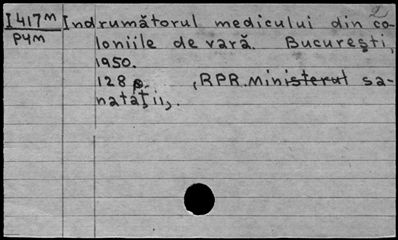 I417m Indrumătorul medicului din co-
P4m loniile de vară. București,
1950.
128 p. (RPR. Ministerul sa-
natații).